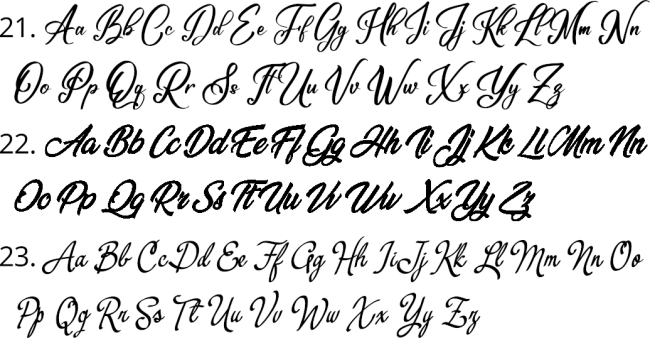 21. Aa Bb Cc Dd Ee Ff Gg Hh Ii Jj Kk Ll Mm Nn
Oo Pp Qq Rr Ss Tt Uu Vv Ww Xx Yy Zz
22. Aa Bb Cc Dd Ee Ff Gg Hh Ii Jj Kk Ll Mm Nn
Oo Pp Qq Rr Ss Tt Uu Vv Ww Xx Yy Zz
23. Aa Bb Cc Dd Ee Ff Gg Hh Ii Jj Kk Ll Mm Nn Oo
Pp Qq Rr Ss Tt Uu Vv Ww Xx Yy Zz